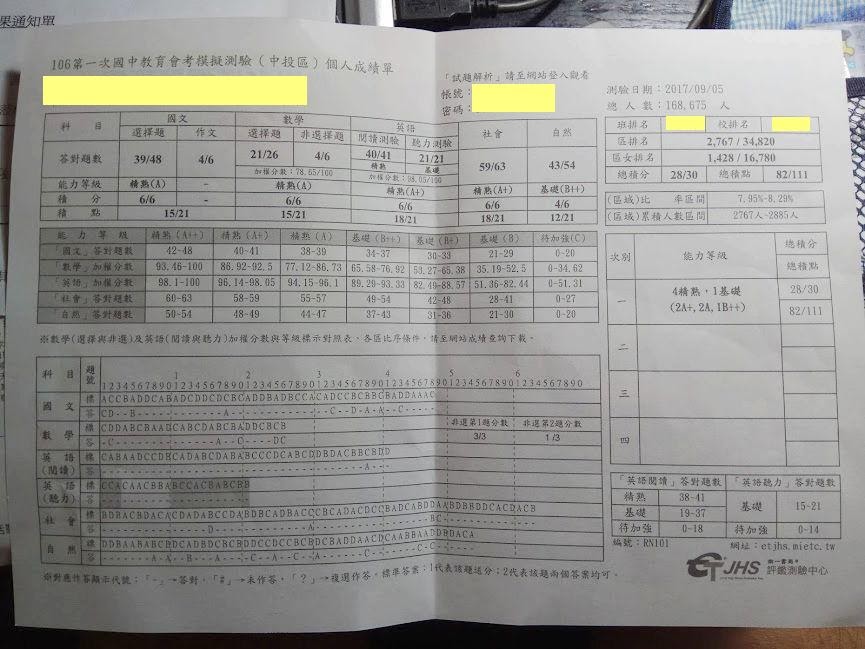 果通知單
106第一次國中教育會考模擬測驗(中投區)個人成績單
「試題解析」請至網站登入觀看
帳號：
密碼：
測驗日期：2017/09/05
總人數：168,675 人
科 目 國文 數學 英語 社會 自然
選擇題 作文 選擇題 非選擇題 閱讀測驗 聽力測驗
答對題數 39/48 4/6 21/26 4/6 40/41 21/21 59/63 43/54
精熟 基礎
加權分數：78.65/100 加權分數：98.05/100
能力等級 精熟(A) - 精熟(A) 精熟(A+) 精熟(A+) 基礎(B++)
積 分 6/6 - 6/6 6/6 6/6 4/6
積 點 15/21 15/21 18/21 18/21 12/21
班排名 校排名
區排名 2,767 / 34,820
區女排名 1,428 / 16,780
總積分 28/30 總積點 82/111
(區域)比 率區間 7.95%-8.29%
(區域)累積人數區間 2767人~2885人
能 力 等 級 精熟(A++) 精熟(A+) 精熟(A) 基礎(B++) 基礎(B+) 基礎(B) 待加強(C)
「國文」答對題數 42-48 40-41 38-39 34-37 30-33 21-29 0-20
「數學」加權分數 93.46-100 86.92-92.5 77.12-86.73 65.58-76.92 53.27-65.38 35.19-52.5 0-34.62
「英語」加權分數 98.1-100 96.14-98.05 94.15-96.1 89.29-93.33 82.49-88.57 51.36-82.44 0-51.31
「社會」答對題數 60-63 58-59 55-57 49-54 42-48 28-41 0-27
「自然」答對題數 50-54 48-49 44-47 37-43 31-36 21-30 0-20
※數學(選擇與非選)及英語(閱讀與聽力)加權分數與等級標示對照表，各區比序條件，請至網站成績查詢下載。
次別 能力等級 總積分
總積點
一 4精熟，1基礎 28/30
(2A+,2A,1B++) 82/111
二
三
四
科 目 題號 1 2 3 4 5 6
123456789012345678901234567890123456789012345678901234567890
國 文 標
答
數 學 標 CDDABCBAABCDABCBADDCBCB
答
非選第1題分數 非選第2題分數
3/3 1/3
英 語 標
(閱讀) 答
英 語 標 CCACAACBBABCCACBABCBB
(聽力) 答
社 會 標
答
自 然 標
答
※對應作答顯示代號：「-」→答對，「#」→未作答，「?」→複選作答。標準答案：1代表該題送分；2代表該題兩個答案均可。
「英語閱讀」答對題數 「英語聽力」答對題數
精熟 38-41 基礎 15-21
基礎 19-37
待加強 0-18 待加強 0-14
編號：RN101 網址：etjhs.mietc.tw
CTJHS 評鑑測驗中心